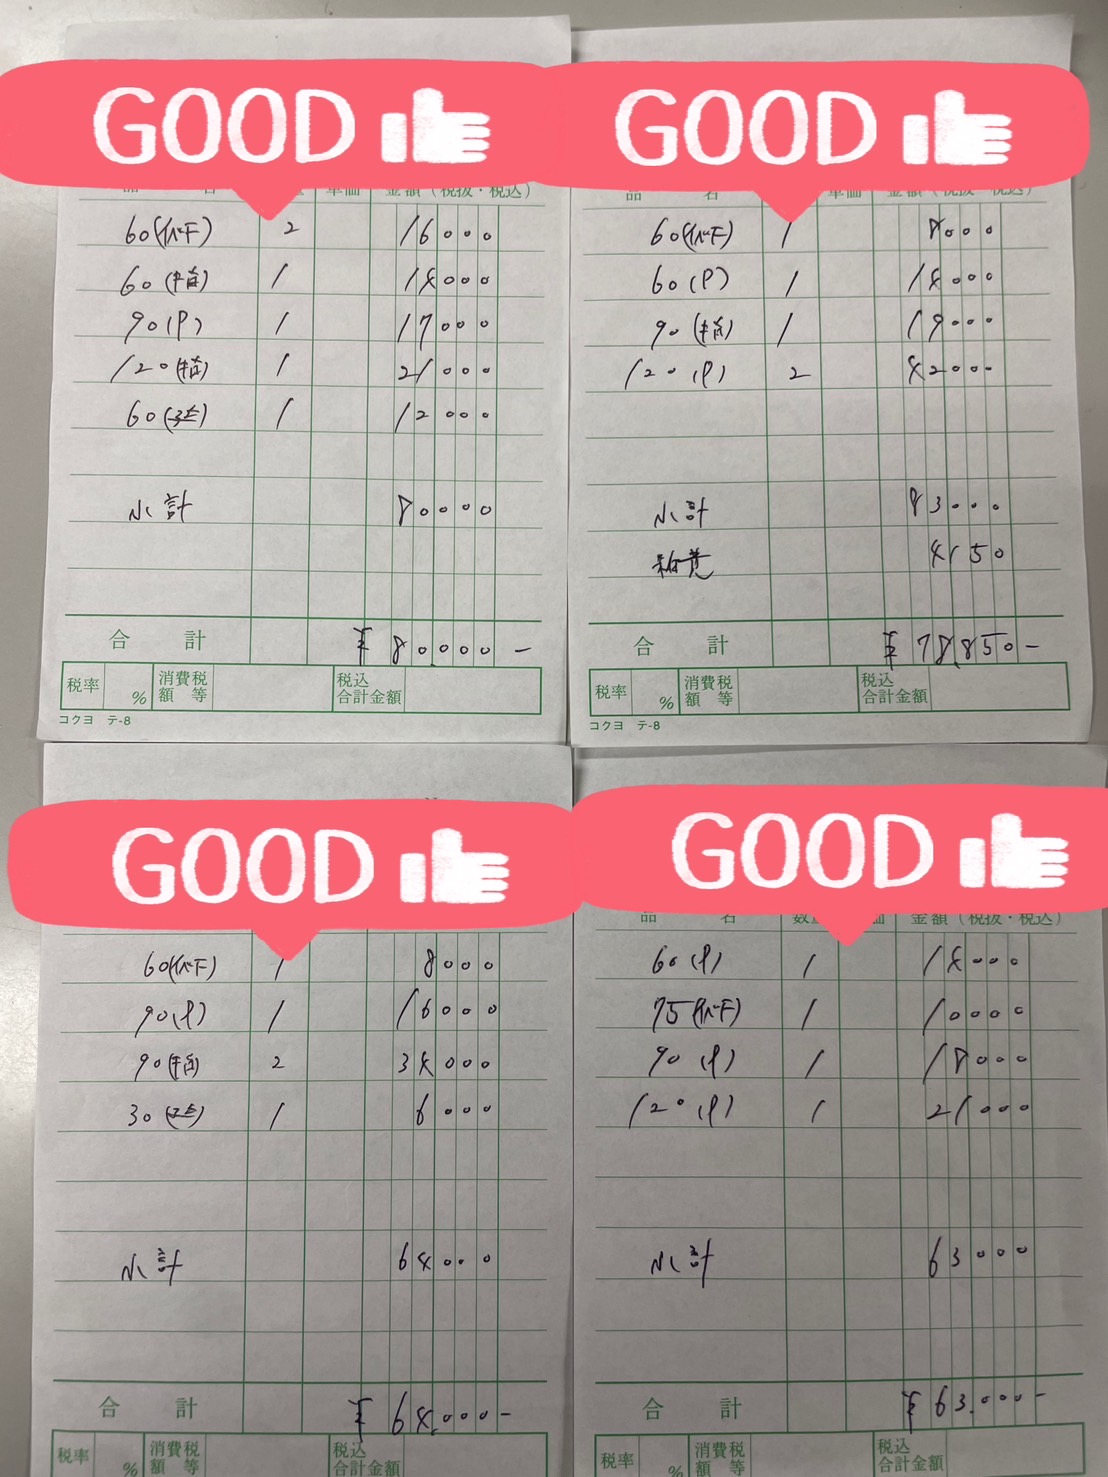 GOOD
品 名 単価 金額(税抜・税込)
60 2 16000
60 1 14000
90(P) 1 17000
120 1 21000
60 1 12000
小計 80000
合計 ¥80,000-
税率 % 消費税額等 税込合計金額
コクヨ テ-8
GOOD
品 名 単価 金額(税抜・税込)
60 1 8000
60(P) 1 14000
90 1 19000
120(P) 2 42000
小計 83000
4150
合計 ¥78,850-
税率 % 消費税額等 税込合計金額
コクヨ テ-8
GOOD
60 1 8000
90(P) 1 16000
90 2 34000
30 1 6000
小計 64000
合計 ¥64,000-
税率 % 消費税額等 税込合計金額
GOOD
品 名 数 価 金額(税抜・税込)
60(P) 1 14000
75 1 10000
90(P) 1 18000
120(P) 1 21000
小計 63000
合計 ¥63,000-
税率 % 消費税額等 税込合計金額